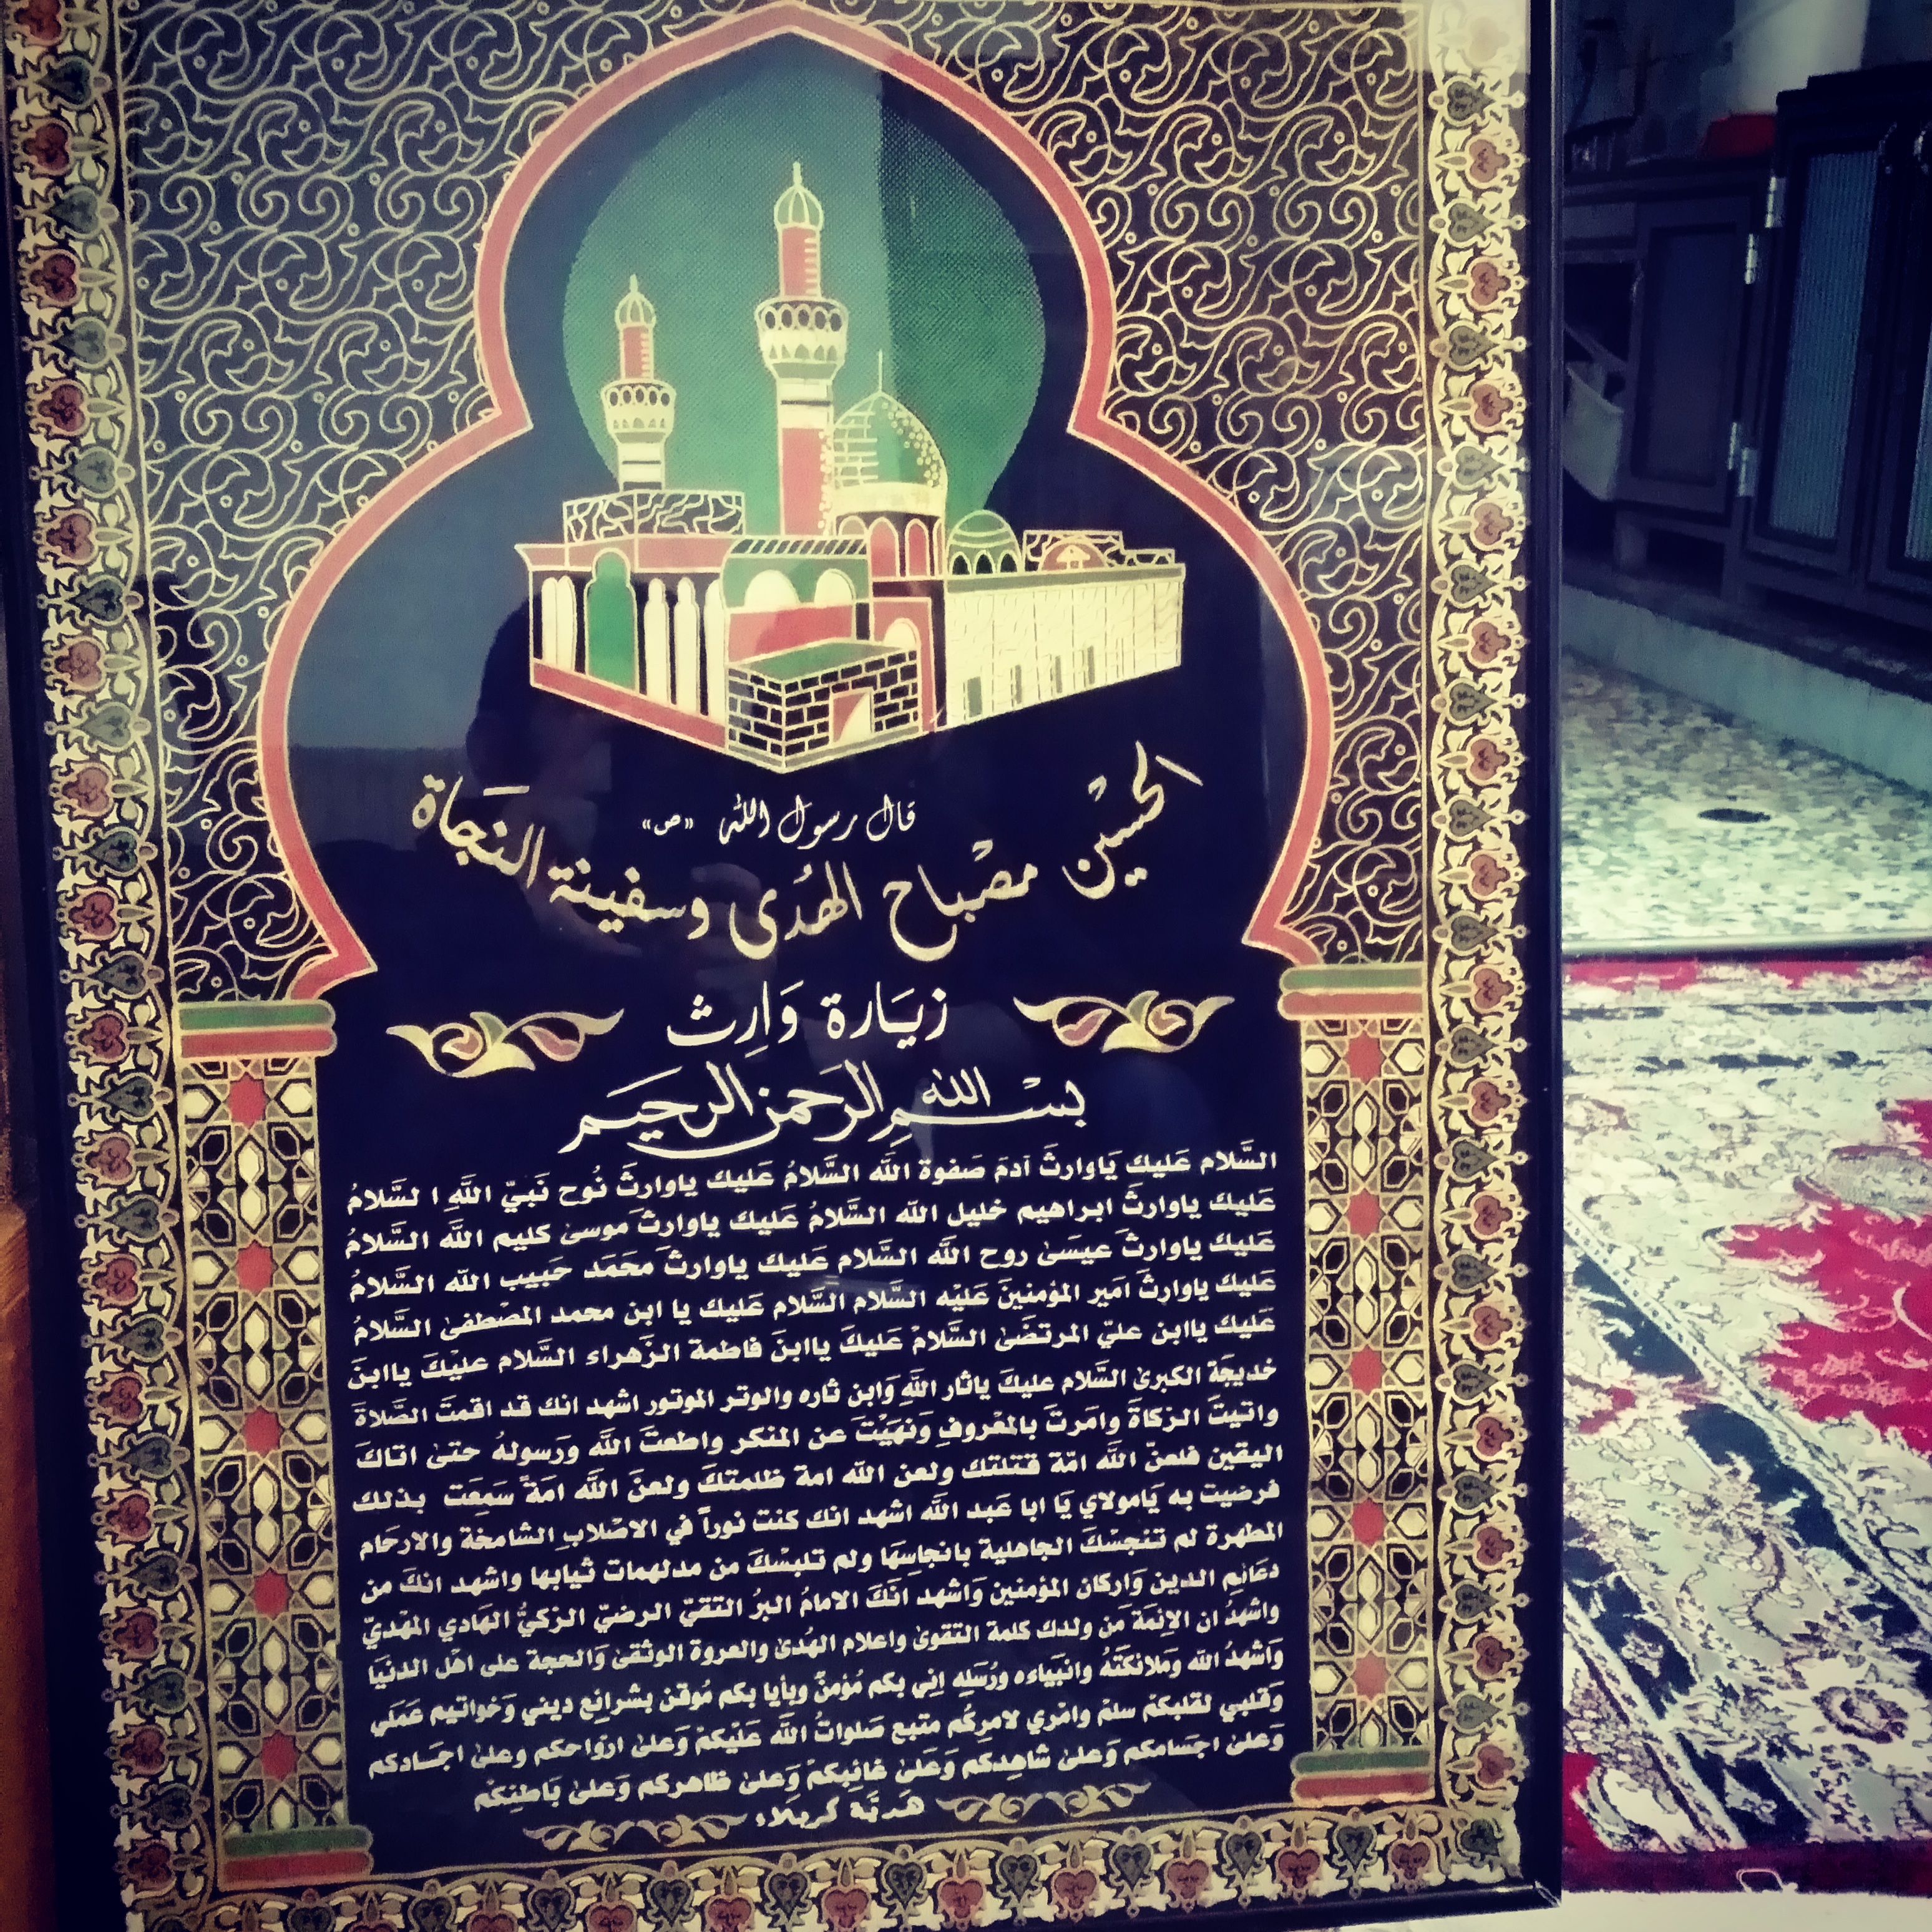 قال رسول الله «ص»
الحسين مصْباح الهُدى وسفينة النجَاة
زيَارة وَارِث
بسْمِ الله الرحَمن الرحيَم
السَّلام عَليكَ يَاوارثَ آدمَ صَفوة اللَّه السَّلامُ عَليك ياوارثَ نُوح نَبيّ اللَّهِ ا لسَّلامُ
عَليكَ ياوارثَ ابراهيم خليل اللَّه السَّلامُ عَليك ياوارثَ موسىٰ كليم اللَّه السَّلامُ
عَليك ياوارثَ عيسَىٰ روح اللَّه السَّلام عَليك ياوارثَ محَمَد حَبيب اللَّه السَّلامُ
عَليكَ ياوارثَ امَير المؤمنينَ عَليْه السَّلام السَّلام عَليك يا ابن محمد المصْطفىٰ السَّلامُ
عَليك ياابن عليّ المرتضَىٰ السَّلامْ عَليكَ ياابنَ فاطمة الزَهراء السَّلام عليْكَ ياابنَ
خديجَة الكبرىٰ السَّلام عليكَ ياثار اللَّهِ وَابن ثاره والوتر الموتور اشهد انك قد اقمتَ الصَّلاةَ
واتيتَ الزكاةَ وامَرتَ بالمعْروفِ وَنهَيْتَ عن المنكر واطعتَ اللَّه ورَسولهُ حتىٰ اتاكَ
اليقين فلعنّ اللَّه امّة قتلتك ولعن اللَّه امة ظلمتكَ ولعنَ اللَّه امَةً سَمِعَت بذلك
فرضيت به يَامولاي يَا ابا عَبد اللَّه اشهد انك كنت نوراً في الاصْلابِ الشامخة والارحَام
المطهرة لم تنجسْكَ الجاهلية بانجاسِهَا ولم تلبسْكَ من مدلهمات ثيابها واشهد انكَ من
دعَائمِ الدين وَاركان المؤمنين وَاشهد انّكَ الامامُ البرُ التقيّ الرضيّ الزكيُّ الهَادي المهْديّ
واشهدُ ان الائمَة مَن ولدك كلمة التقوىٰ واعلام الهُدىٰ والعروة الوثقىٰ وَالحجة على اهْل الدنيَا
وَاشهدُ اللَّه وَمَلائكَتَهُ وانبيَاءه ورُسَلِه اِني بكم مُؤمنٌ وبأيا بكم مُوقن بشرائِع ديني وَخواتيم عَمَلي
وَقلبي لقلبكمْ سلمْ وامْري لامرِكُم متبع صَلواتُ اللَّه عَليْكمْ وَعلىٰ ارْواحكم وعلىٰ اجسَادكم
وَعلىٰ اجسَامكم وَعلىٰ شاهِدكم وَعَلىٰ غائِبكمْ وَعلىٰ ظاهركم وَعلىٰ بَاطنِكْم
هَديَّة كربلاء